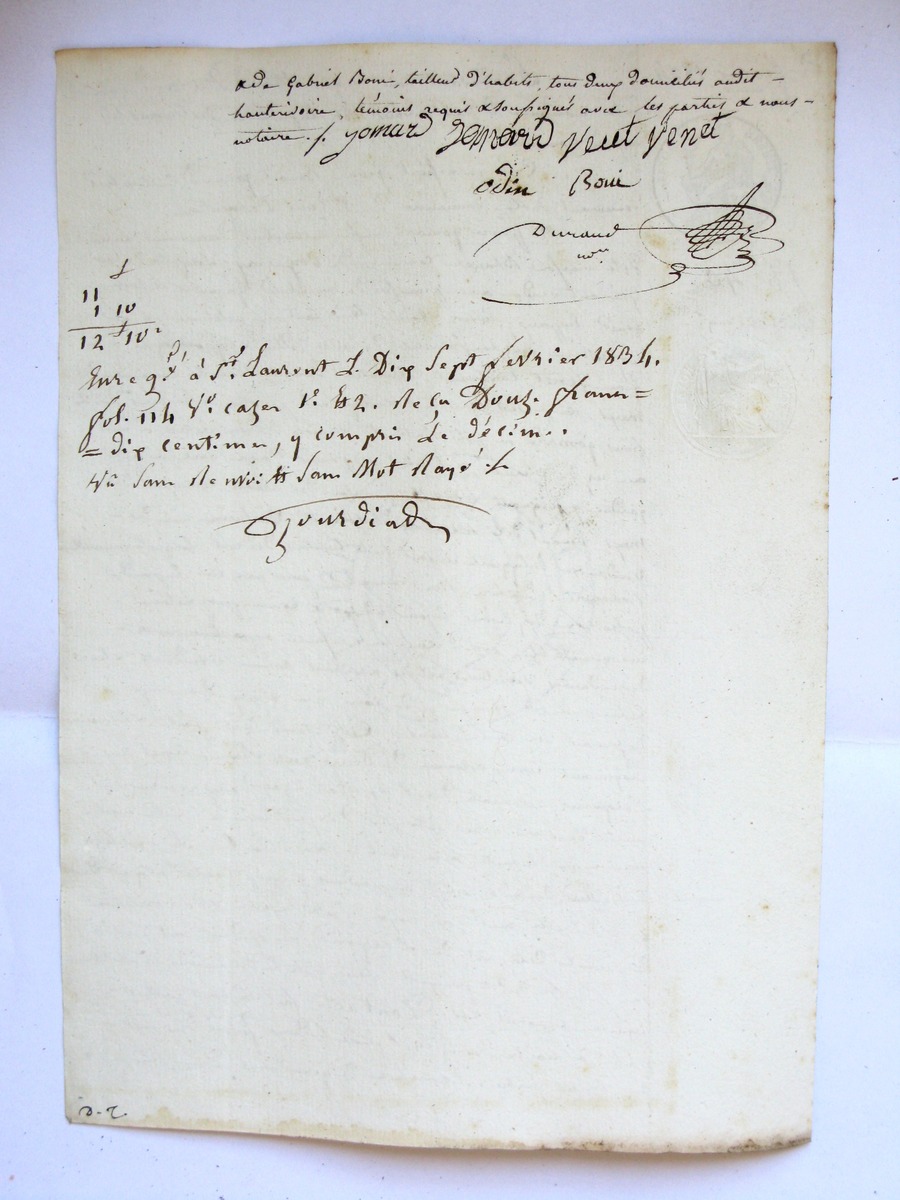 & de Gabriel Boni, tailleur d'habits, tous deux domiciliés audit
hauterivoire, témoins requis & soussignés avec les parties & nous
notaire ./. Jomard Venet
odin Boni
Durand
nore
f
11
1 10
12 f 10c
Enregt. à St. Laurent L. Dix Sept fevrier 1834.
fol. 114 Vo. cazes 1e. Et 2. Reçu Douze francs =
= dix centimes, y compris Le décime.
Vu Sans Renvoi Et Sans Mot Rayé ./.